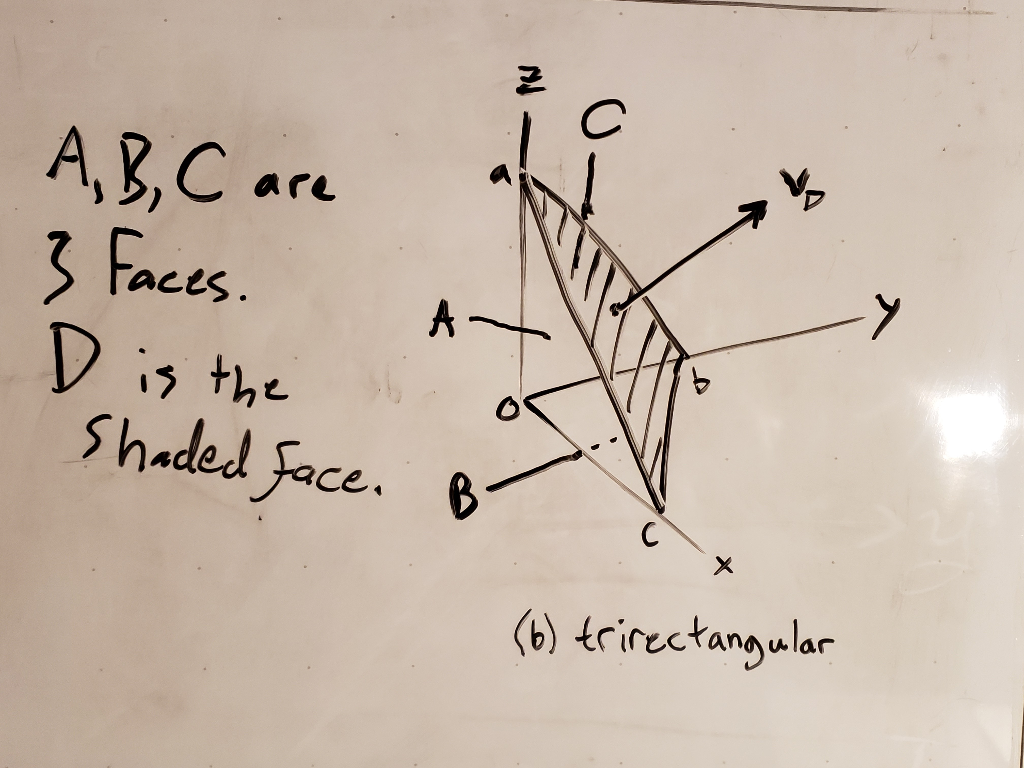 A, B, C are
3 Faces.
D is the
shaded face.
z
C
a
V_D
A
y
b
O
B
c
x
(b) trirectangular